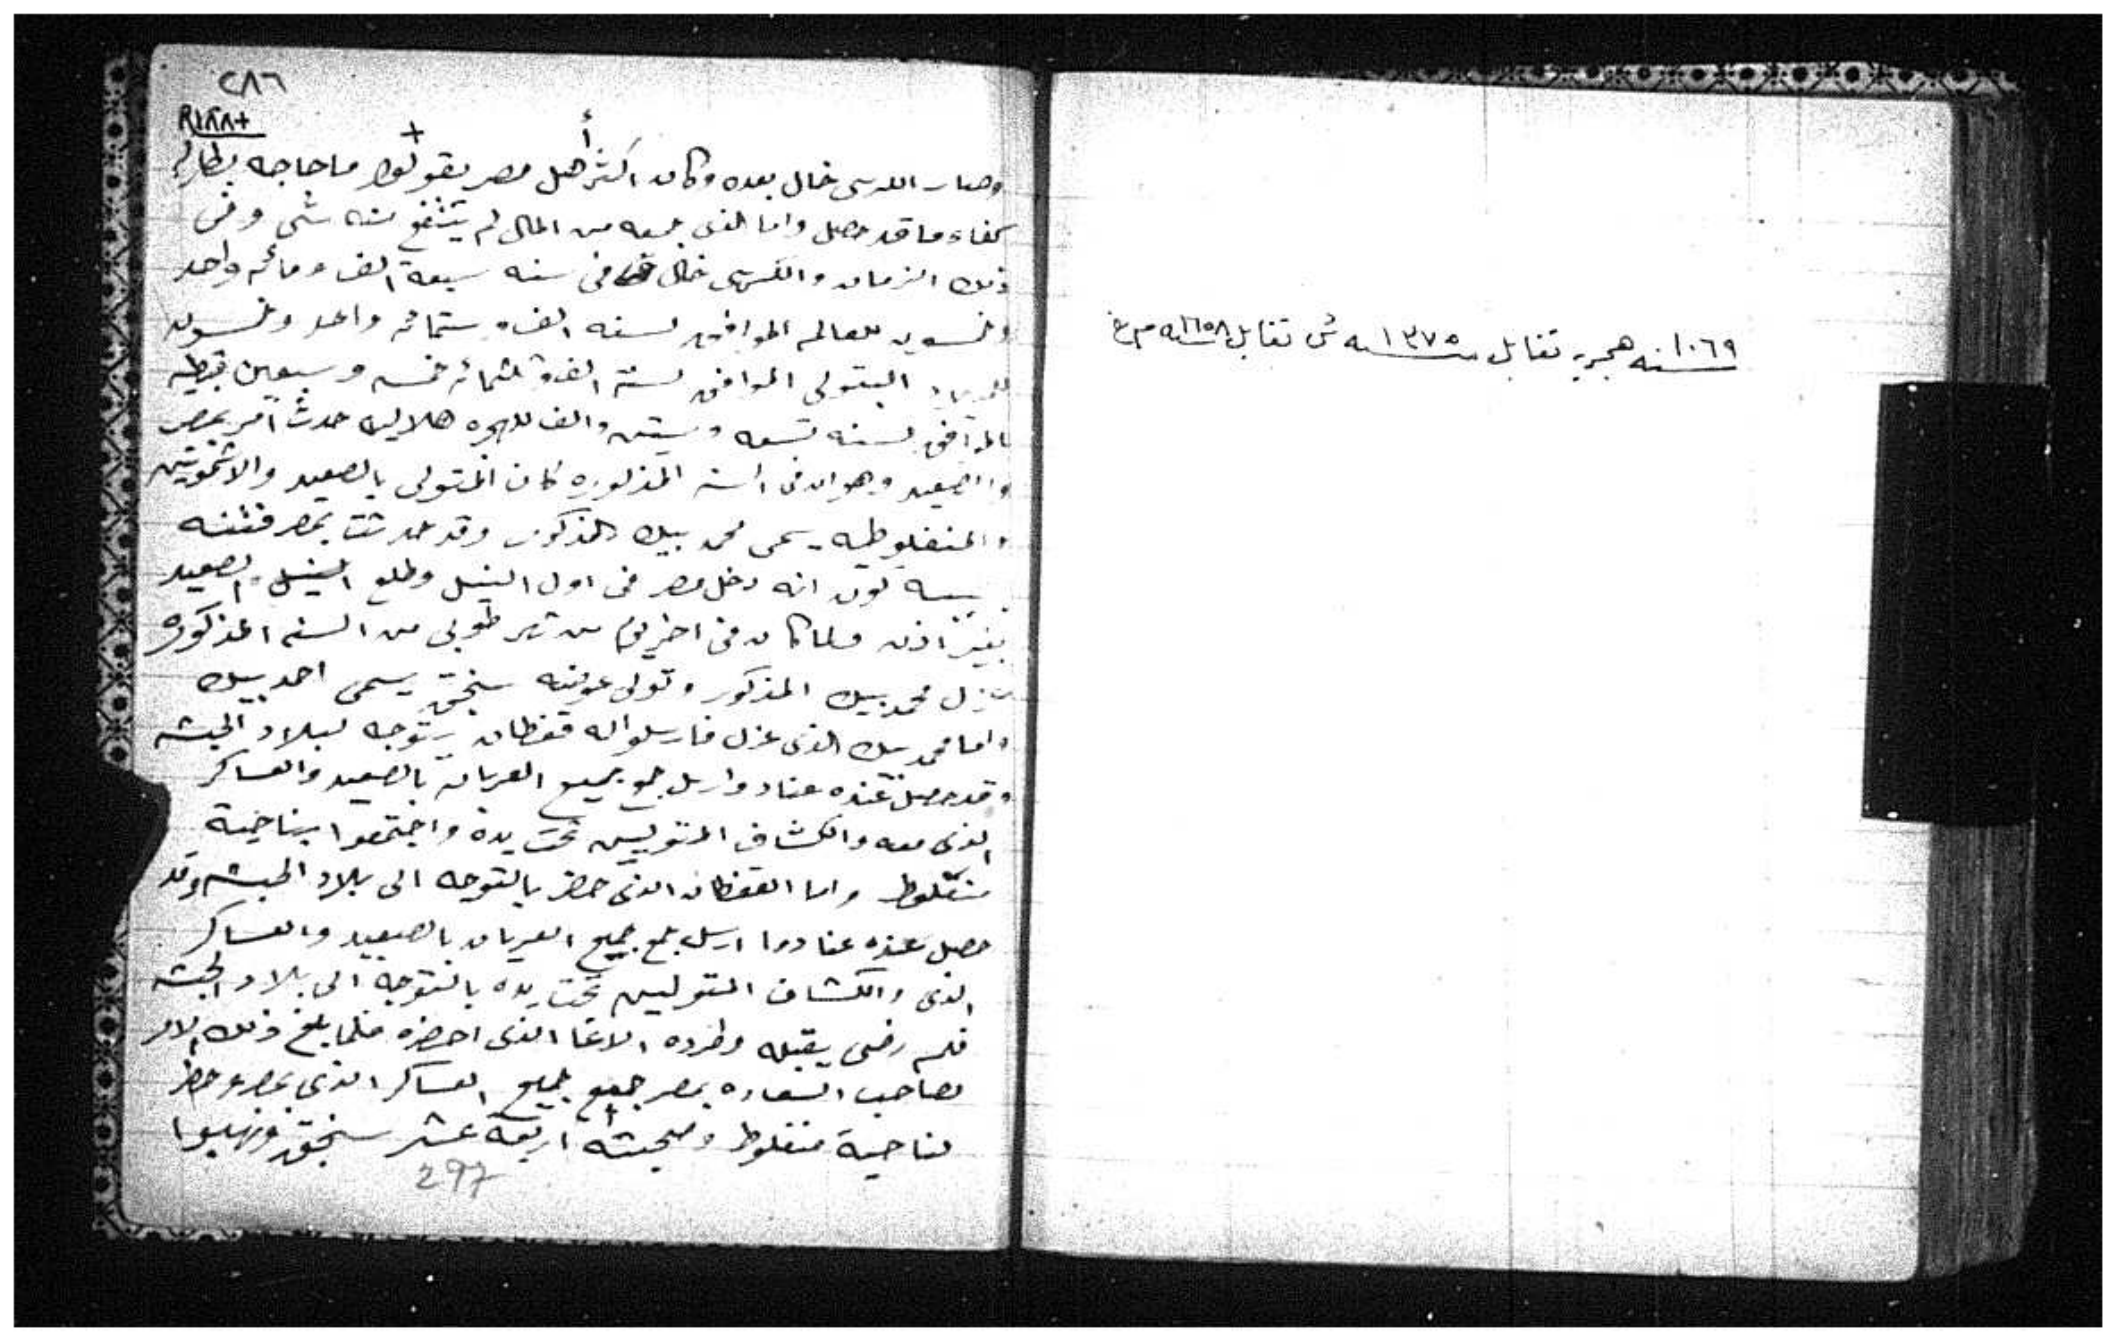 ١٠٦٩ سنه هجريه تقابل ١٣٧٥ سنه ش تقابل ١٦٥٨ سنه م غ
٢٨٦
وصار الكرسى خال بعده وكان اكثر أهل مصر يقولوا ما حاجه بطارك
كفاء ما قد حصل واما الذى جمعه من المال لم ينتفع منه شى وفى
ذلك الزمان والكرسى خال فى سنه سبعة الف ومائه واحد
وخمسون للعالم الموافق لسنه الف وستمائه واحد وخمسون
للميلاد البتولى الموافق لسنة الف وثلثمائه خمسه وسبعين قبطيه
الموافق لسنه تسعه وستين والف للهجره هلاليه حدث أمر بمصر
والصعيد وهو ان فى السنه المذكوره كان المتولى بالصعيد والاشمونين
والمنفلوطيه يسمى محمد بيك المذكور وقد حدثت بمصر فتنه
بسببه كون انه دخل مصر فى اول النيل وطلع الصعيد
بغير اذن فلما كان فى اخر يوم من شهر طوبى من السنه المذكوره
عزل محمد بيك المذكور وتولى عوضه سنجق يسمى احمد بيك
واما محمد بيك الذى عزل فارسلوا له قفطان يتوجه لبلاد الحبشه
وقد حصل عنده عناد وارسل جمع جميع العربان بالصعيد والعساكر
الذى معه والكشاف المتوليين تحت يده واجتمعوا بناحية
منفلوط واما القفطان الذى حضر بالتوجه الى بلاد الحبشه وقد
حصل عنده عناد وا ارسل جمع جميع العربان بالصعيد والعساكر
الذى والكشاف المتوليين تحت يده بالتوجه الى بلاد الحبشه
فلم رضى يقبله وطرده الاغا الذى احضره فلما بلغ ذلك الامر
لصاحب السعاده بمصر جمع جميع العساكر الذى بمصر وحضر
لناحية منفلوط وصحبته اربعة عشر سنجق ونهبوا
297